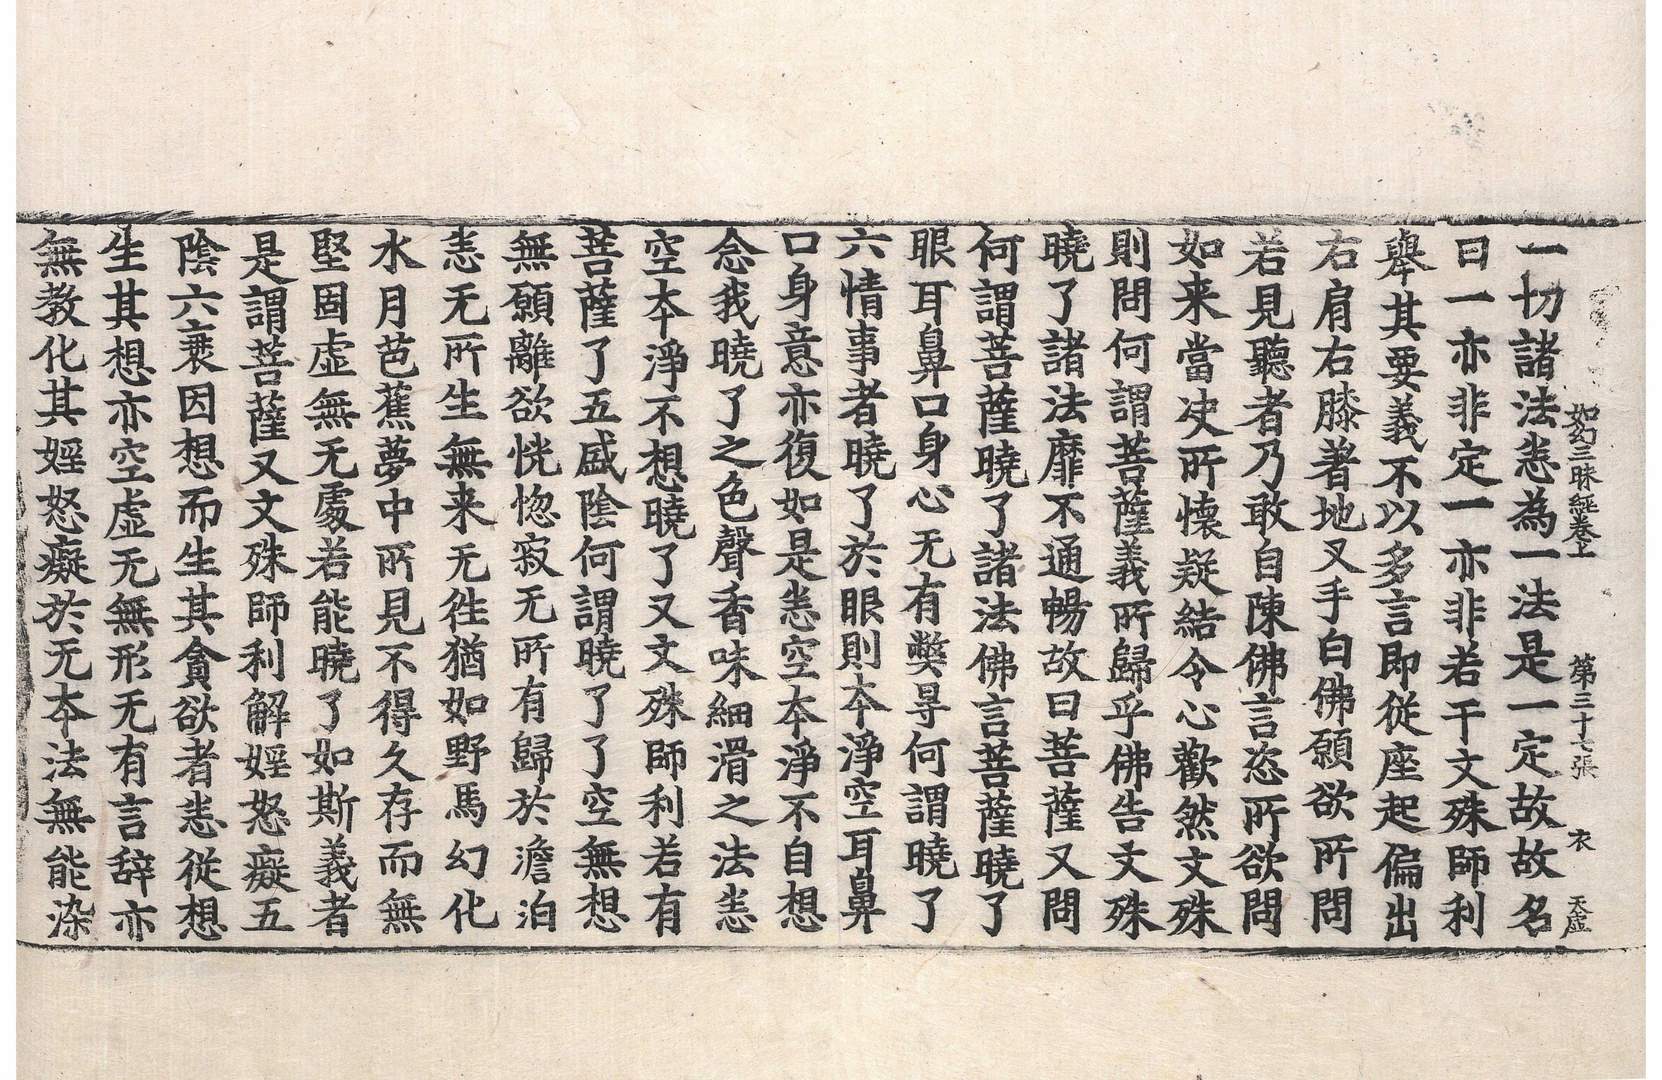 如幻三昧經卷上　第三十七張　衣　天虛
一切諸法悉為一法是一定故故名
曰一亦非定一亦非若干文殊師利
舉其要義不以多言即從座起偏出
右肩右膝著地叉手白佛願欲所問
若見聽者乃敢自陳佛言恣所欲問
如来當决所懷疑結令心歡然文殊
則問何謂菩薩義所歸乎佛告文殊
曉了諸法靡不通暢故曰菩薩又問
何謂菩薩曉了諸法佛言菩薩曉了
眼耳鼻口身心无有獘㝵何謂曉了
六情事者曉了於眼則本淨空耳鼻
口身意亦復如是悉空本淨不自想
念我曉了之色聲香味細滑之法悉
空本淨不想曉了又文殊師利若有
菩薩了五盛陰何謂曉了了空無想
無願離欲恍惚寂无所有歸於澹泊
悉无所生無来无徃猶如野馬幻化
水月芭蕉夢中所見不得久存而無
堅固虛無无處若能曉了如斯義者
是謂菩薩又文殊師利解婬怒癡五
陰六衰因想而生其貪欲者悉從想
生其想亦空虛无無形无有言辞亦
無教化其婬怒癡於无本法無能染